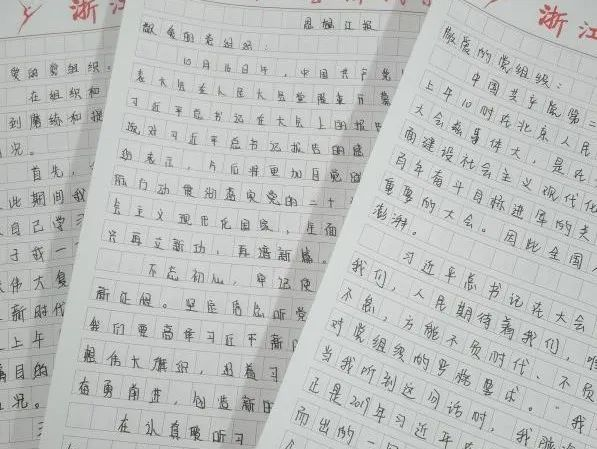 浙江
爱的党组织:
在组织和
到磨练和提
况。
首先,
此期间我
自己学习
于我一
伟大复
新时代
上午
目的
况。
思想汇报
敬爱的党组织:
10月16日上午,中国共产党
表大会在人民大会堂隆重开幕
习近平总书记在大会上的报告
对习近平总书记报告的
表示,今后将更加自觉
动贯彻落实党的二十
会主义现代化国家,全面
再立新功,再谱新篇。
不忘初心,牢记使
新征程。坚定信念听党
我们要高举习近平新时
想伟大旗帜,沿着习
奋勇前进,创造新的
在认真聆听习
浙江
敬爱的党组织:
中国共产党第二
上午10时在北京人民
大会意义重大,是在
面建设社会主义现代化
百年奋斗目标进军的关
重要的大会。因此全国
澎湃。
习近平总书记在大会
我们,人民期待着我们,唯
不息,方能不负时代,不负
对党组织的严格要求。“我
当我听到这句话时,我脑海
正是2019年习近平在
而出的一